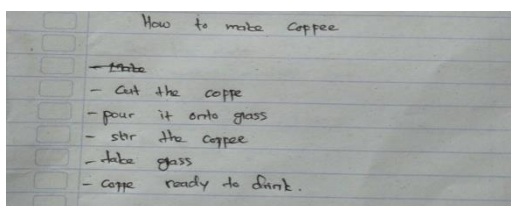 How to make Coppee
- Make
- Cut the coppe
- pour it onto glass
- stir the coppee
- take glass
- coppe ready to drink.